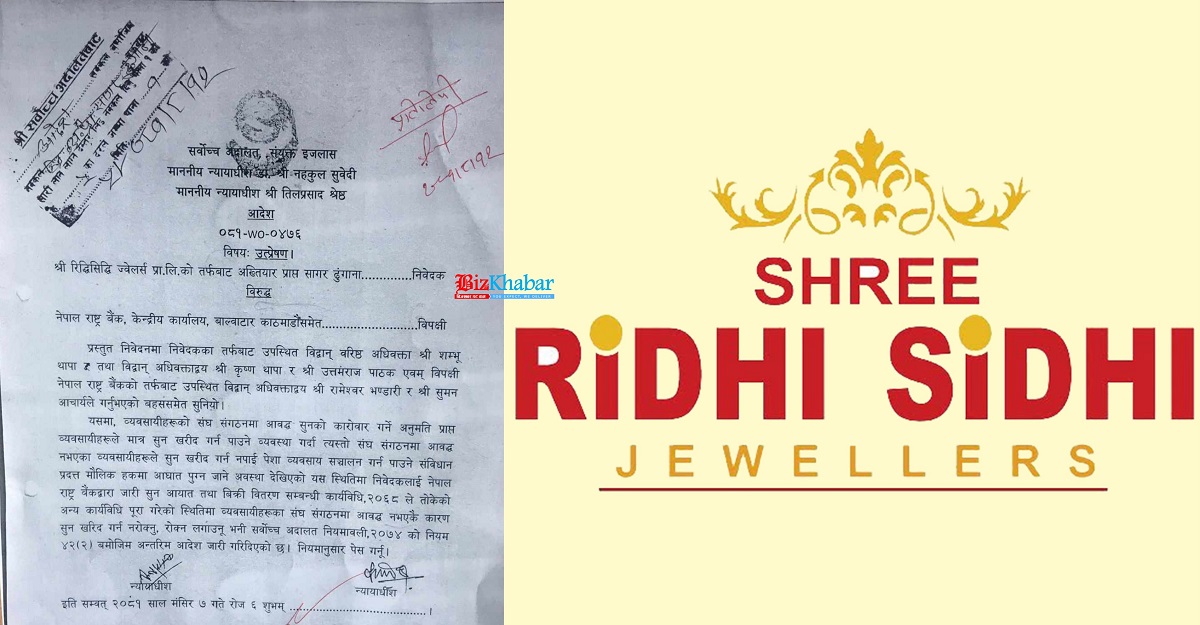 श्री सर्वोच्च अदालतबाट
आदेश
मिति
२०८१।८।१२
प्रतिलिपी
सर्वोच्च अदालत, संयुक्त इजलास
माननीय न्यायाधीश डा. श्री नहकुल सुवेदी
माननीय न्यायाधीश श्री तिलप्रसाद श्रेष्ठ
आदेश
०८१-WO-०४७६
विषयः उत्प्रेषण।
श्री रिद्धिसिद्धि ज्वेलर्स प्रा.लि.को तर्फबाट अख्तियार प्राप्त सागर ढुंगाना..............निवेदक
विरुद्ध
नेपाल राष्ट्र बैंक, केन्द्रीय कार्यालय, बाल्वाटार काठमाडौंसमेत..........................विपक्षी
प्रस्तुत निवेदनमा निवेदकका तर्फबाट उपस्थित विद्वान् वरिष्ठ अधिवक्ता श्री शम्भू
थापा र तथा विद्वान् अधिवक्ताद्वय श्री कृष्ण थापा र श्री उत्तमराज पाठक एवम् विपक्षी
नेपाल राष्ट्र बैंकको तर्फबाट उपस्थित विद्वान् अधिवक्ताद्वय श्री रामेश्वर भण्डारी र श्री सुमन
आचार्यले गर्नुभएको बहससमेत सुनियो।
यसमा, व्यवसायीहरूको संघ संगठनमा आवद्ध सुनको कारोवार गर्ने अनुमति प्राप्त
व्यवसायीहरूले मात्र सुन खरीद गर्न पाउने व्यवस्था गर्दा त्यस्तो संघ संगठनमा आवद्ध
नभएका व्यवसायीहरूले सुन खरीद गर्न नपाई पेशा व्यवसाय सञ्चालन गर्न पाउने संविधान
प्रदत्त मौलिक हकमा आघात पुग्न जाने अवस्था देखिएको यस स्थितिमा निवेदकलाई नेपाल
राष्ट्र बैंकद्वारा जारी सुन आयात तथा बिक्री वितरण सम्बन्धी कार्यविधि,२०६८ ले तोकेको
अन्य कार्यविधि पूरा गरेको स्थितिमा व्यवसायीहरूका संघ संगठनमा आवद्ध नभएकै कारण
सुन खरिद गर्न नरोक्नु, रोक्न लगाउनू भनी सर्वोच्च अदालत नियमावली,२०७४ को नियम
४२(२) बमोजिम अन्तरिम आदेश जारी गरिदिएको छ। नियमानुसार पेस गर्नू।
न्यायाधीश
न्यायाधीश
इति सम्वत् २०८१ साल मंसिर ७ गते रोज ६ शुभम् ..............................।
BizKhabar
SHREE
RiDHI SiDHI
JEWELLERS